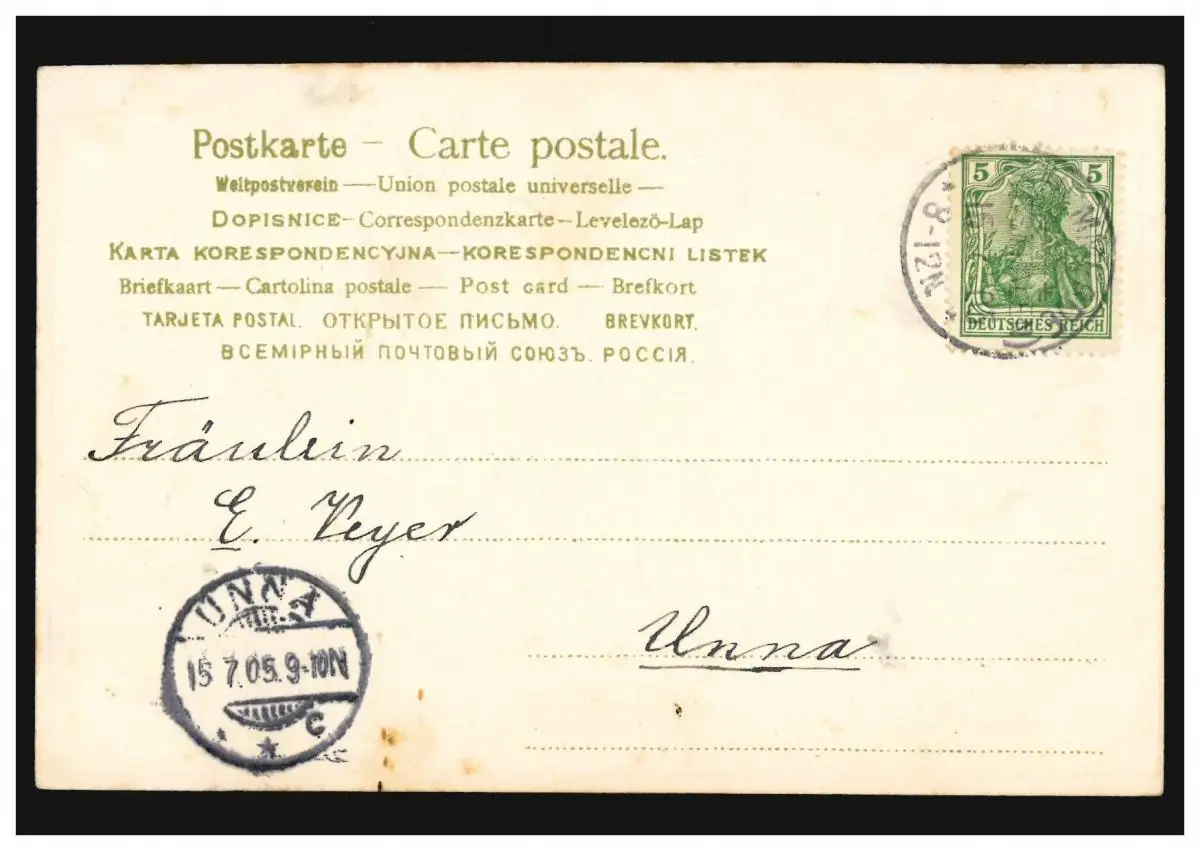 Postkarte – Carte postale.
Weltpostverein — Union postale universelle —
DOPISNICE – Correspondenzkarte – Levelezõ-Lap
KARTA KORESPONDENCYJNA — KORESPONDENCNI LISTEK
Briefkaart — Cartolina postale — Post card — Brefkort
TARJETA POSTAL. ОТКРЫТОЕ ПИСЬМО. BREVKORT.
ВСЕМІРНЫЙ ПОЧТОВЫЙ СОЮЗЪ. РОССІЯ.
5 5
DEUTSCHES REICH
* 8-12N. *
Fräulein
E. Veyer
Unna
UNNA
15 7.05.9-10N
* * C